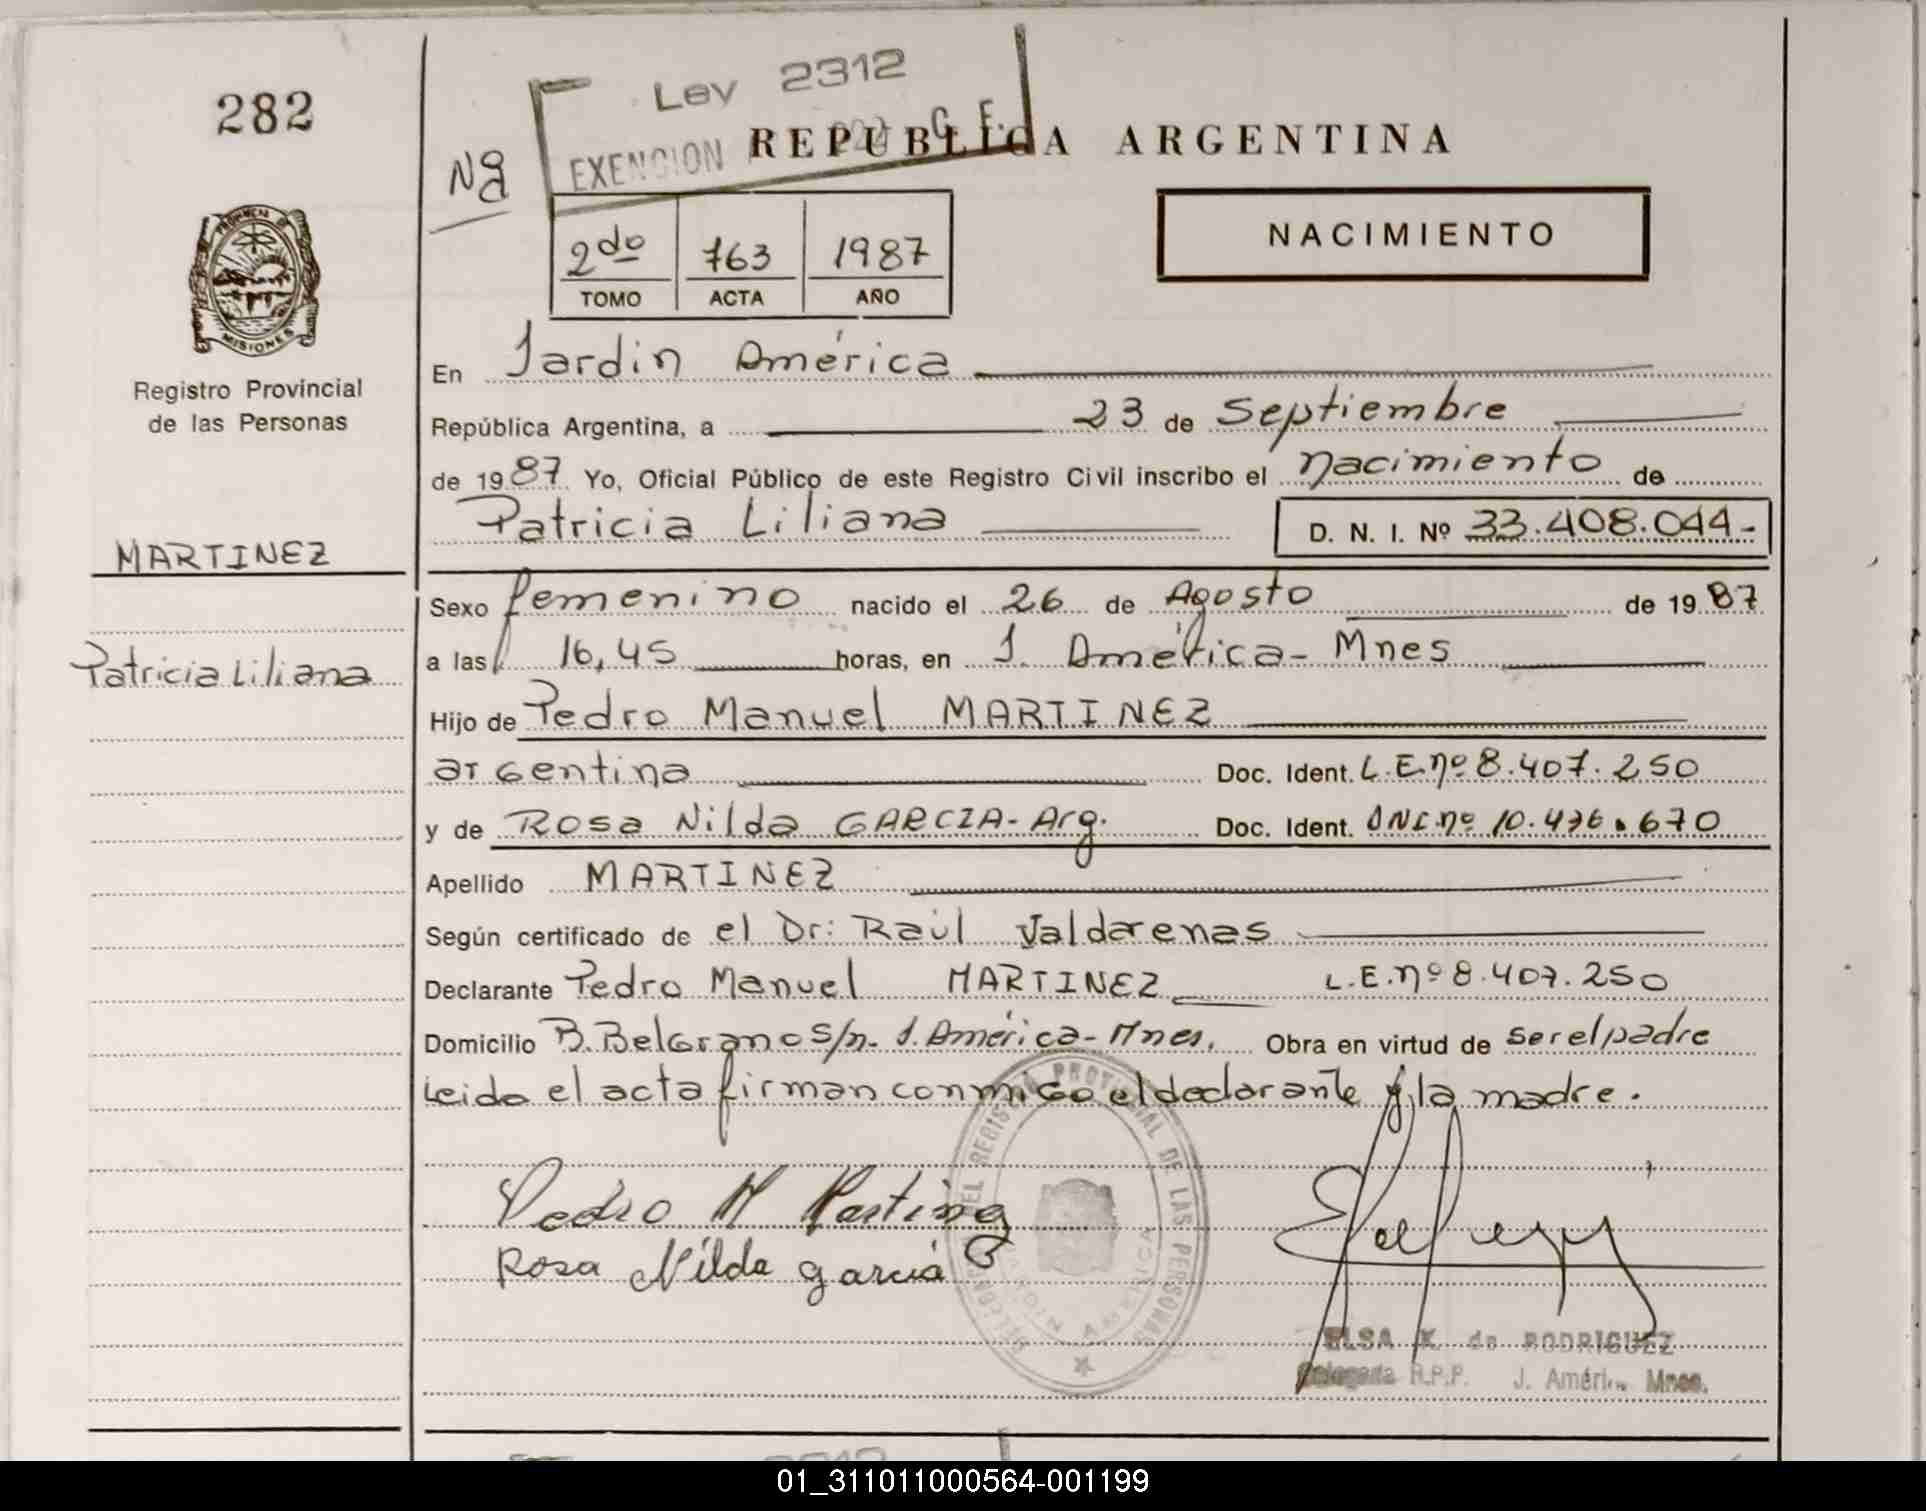 282
Ley 2312
EXENCION G. F.
REPUBLICA ARGENTINA
Nº
NACIMIENTO
2do 763 1987
TOMO ACTA AÑO
PROVINCIA DE MISIONES
Registro Provincial
de las Personas
MARTINEZ
Patricia Liliana
En Jardin América
República Argentina, a 23 de Septiembre
de 1987 Yo, Oficial Público de este Registro Civil inscribo el nacimiento de
Patricia Liliana D. N. I. Nº 33.408.044-
Sexo femenino nacido el 26 de Agosto de 1987
a las 16,45 horas, en J. América- Mnes
Hijo de Pedro Manuel MARTINEZ
argentina Doc. Ident. L.E.nº 8.407.250
y de Rosa Nilda GARCIA- Arg. Doc. Ident. DNI.nº 10.476.670
Apellido MARTINEZ
Según certificado de el Dr: Raúl Valdarenas
Declarante Pedro Manuel MARTINEZ L.E.nº 8.407.250
Domicilio B. Belgrano S/n- J. América- Mnes. Obra en virtud de ser el padre
Leida el acta firman conmigo el declarante y la madre.
DEL REGISTRO PROVINCIAL DE LAS PERSONAS
JARDIN AMERICA
Pedro M Martinez
Rosa Nilda garcia
ELSA K. de RODRIGUEZ
Delegada R.P.P. J. Améri.. Mnes.
2312
01_311011000564-001199